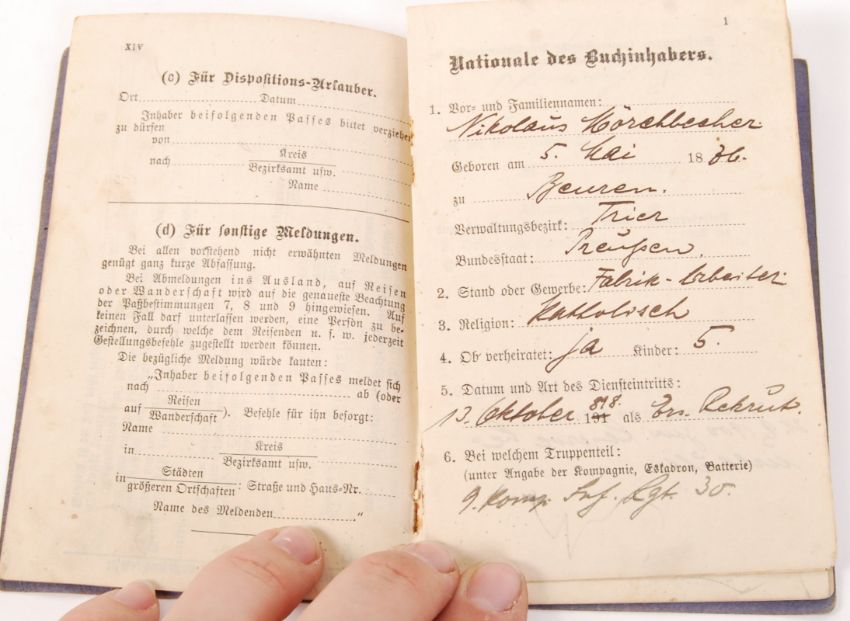 XIV
(c) Für Dispositions-Urlauber.
Ort Datum
Inhaber beifolgenden Passes bittet verziehen
zu dürfen
von
nach Kreis
Bezirksamt usw.
Name
(d) Für sonstige Meldungen.
Bei allen vorstehend nicht erwähnten Meldungen
genügt ganz kurze Abfassung.
Bei Abmeldungen ins Ausland, auf Reisen
oder Wanderschaft wird auf die genaueste Beachtung
der Paßbestimmungen 7, 8 und 9 hingewiesen. Auf
keinen Fall darf unterlassen werden, eine Person zu be-
zeichnen, durch welche dem Reisenden u. s. w. jederzeit
Gestellungsbefehle zugestellt werden können.
Die bezügliche Meldung würde lauten:
„Inhaber beifolgenden Passes meldet sich
nach ab (oder
Reisen
auf Wanderschaft). Befehle für ihn besorgt:
Name
in Kreis
Bezirksamt usw.
in Städten
größeren Ortschaften: Straße und Haus-Nr.
Name des Meldenden "
1
Nationale des Buchinhabers.
1. Vor- und Familiennamen:
Nikolaus Mörchbecher
Geboren am 5. Mai 18
zu Beuren.
Verwaltungsbezirk: Trier
Bundesstaat: Preußen
2. Stand oder Gewerbe: Fabrik-Arbeiter
3. Religion: Katholisch
4. Ob verheiratet: ja Kinder: 5.
5. Datum und Art des Diensteintritts:
13. Oktober als Rekrut.
6. Bei welchem Truppenteil:
(unter Angabe der Kompagnie, Eskadron, Batterie)
9. Komp. Inf. Rgt. 30.